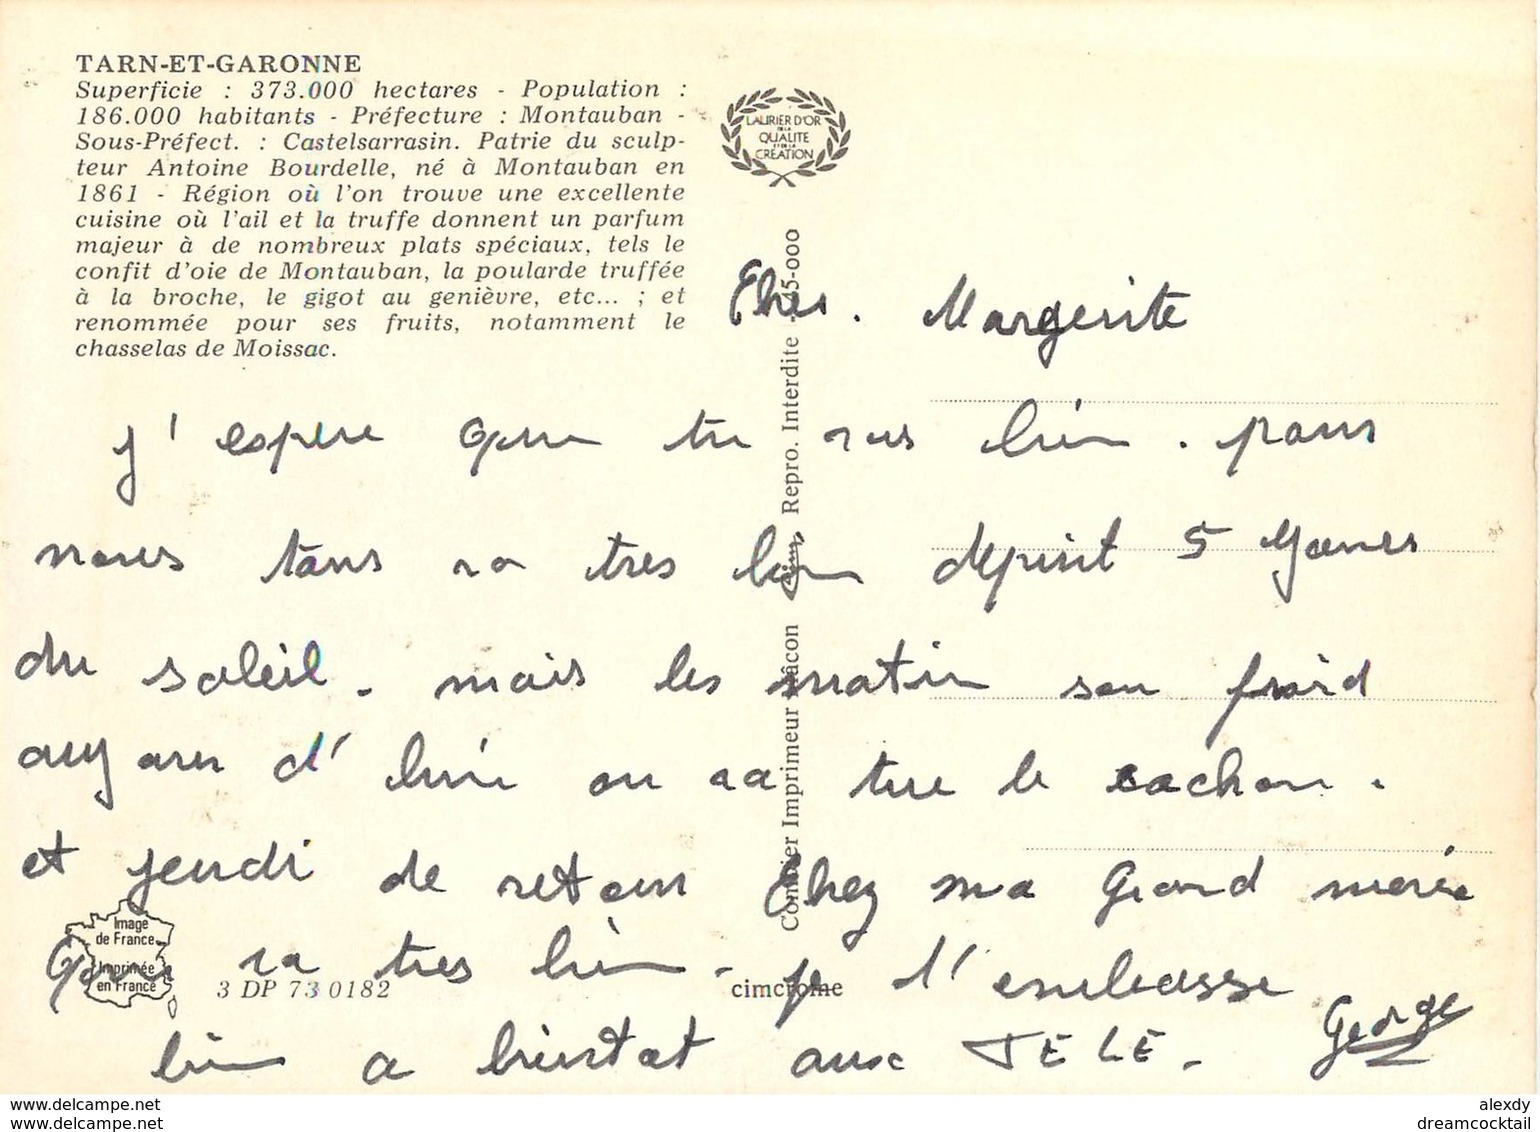 TARN-ET-GARONNE
Superficie : 373.000 hectares - Population :
186.000 habitants - Préfecture : Montauban -
Sous-Préfect. : Castelsarrasin. Patrie du sculp-
teur Antoine Bourdelle, né à Montauban en
1861 - Région où l'on trouve une excellente
cuisine où l'ail et la truffe donnent un parfum
majeur à de nombreux plats spéciaux, tels le
confit d'oie de Montauban, la poularde truffée
à la broche, le gigot au genièvre, etc... ; et
renommée pour ses fruits, notamment le
chasselas de Moissac.
LAURIER D'OR
DE LA
QUALITE
ET DE LA
CREATION
Combier Imprimeur Mâcon Repro. Interdite
Margerite
j'espere que tu vas bien. pour
nous tous va tres bien depuit 5
du soleil. mais les matin son froid
d' on a tue le cochon.
et jeudi de retour Chez ma Grand
va tres bien. je t'embrasse
bien a bientot aux TELE. George
Image
de France
Imprimée
en France
3 DP 73 0182
cimcrome
alexdy
dreamcocktail
alexdy
dreamcocktail